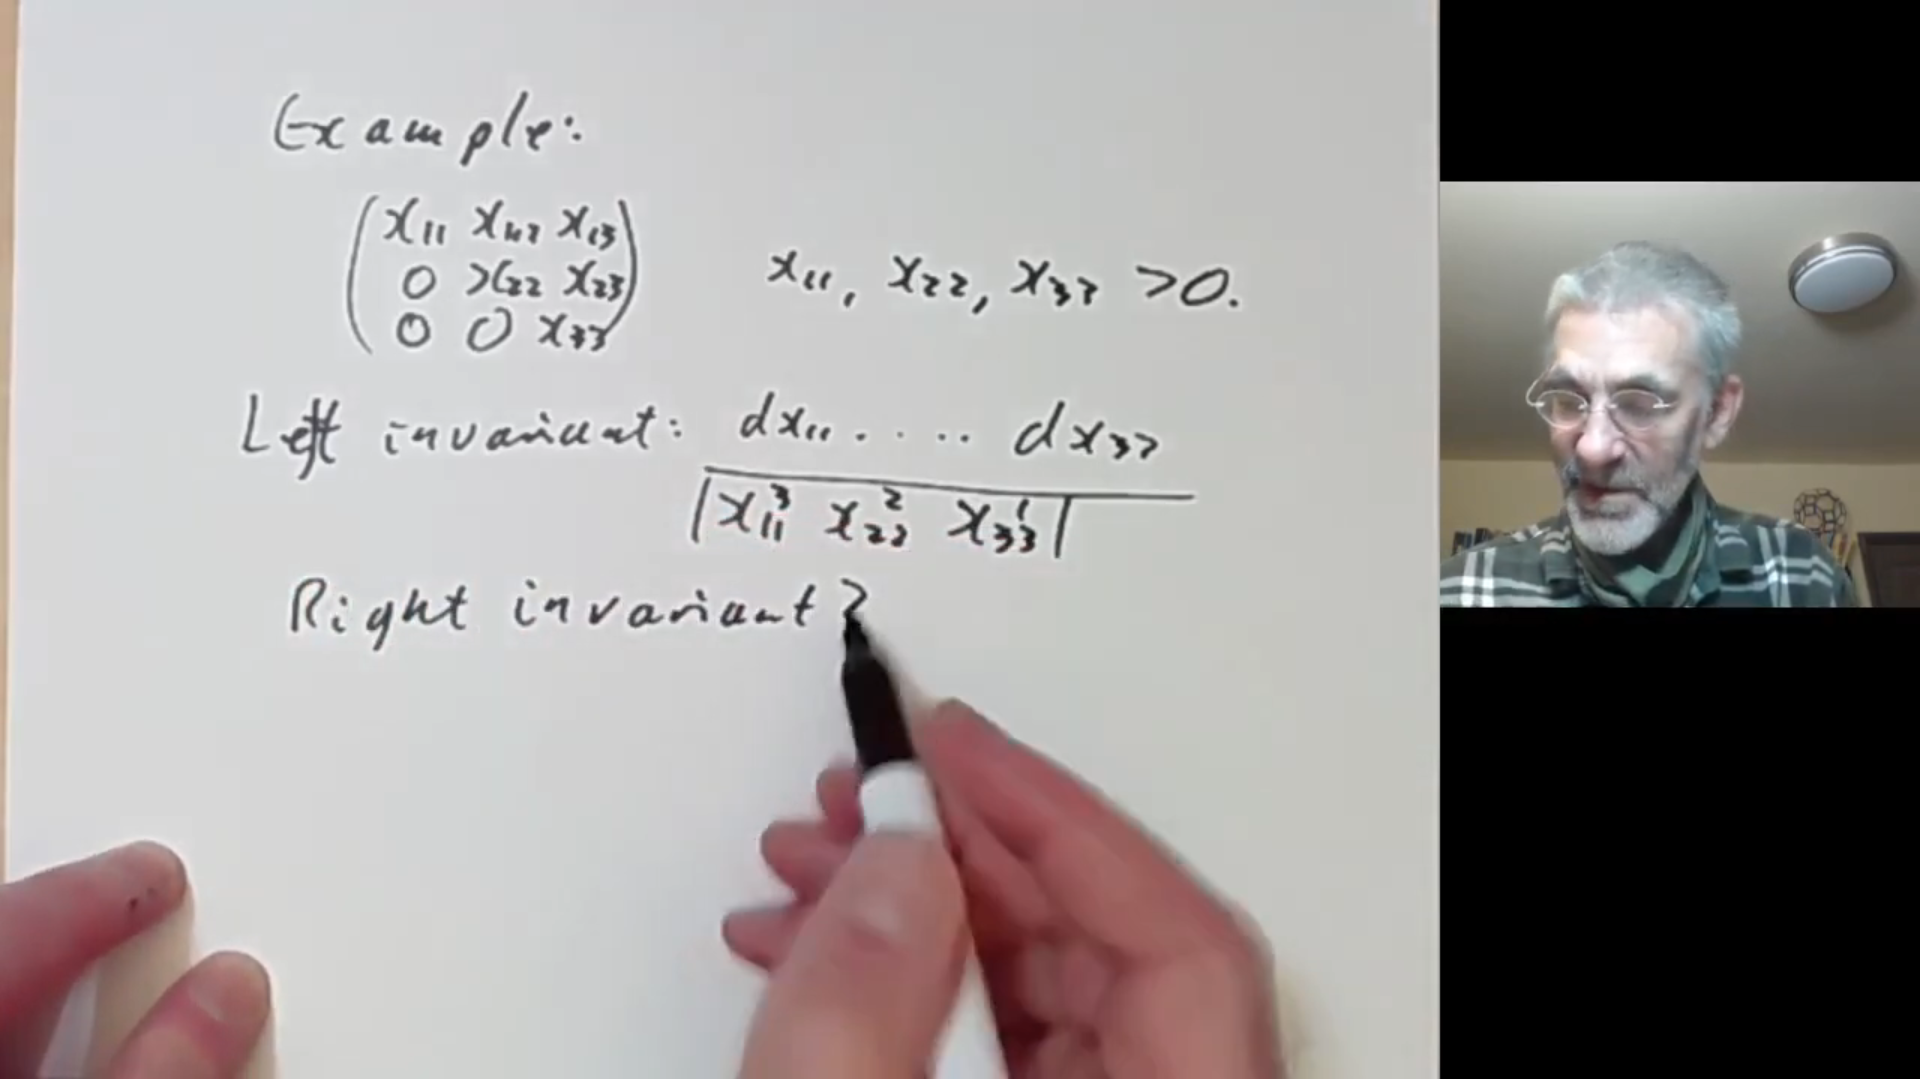 Example:
( x₁₁ x₁₂ x₁₃ )
( 0 x₂₂ x₂₃ )
( 0 0 x₃₃ )
x₁₁, x₂₂, x₃₃ >0.
Left invariant: dx₁₁ . . . . dx₃₃
|x₁₁³ x₂₂² x₃₃¹|
Right invariant?